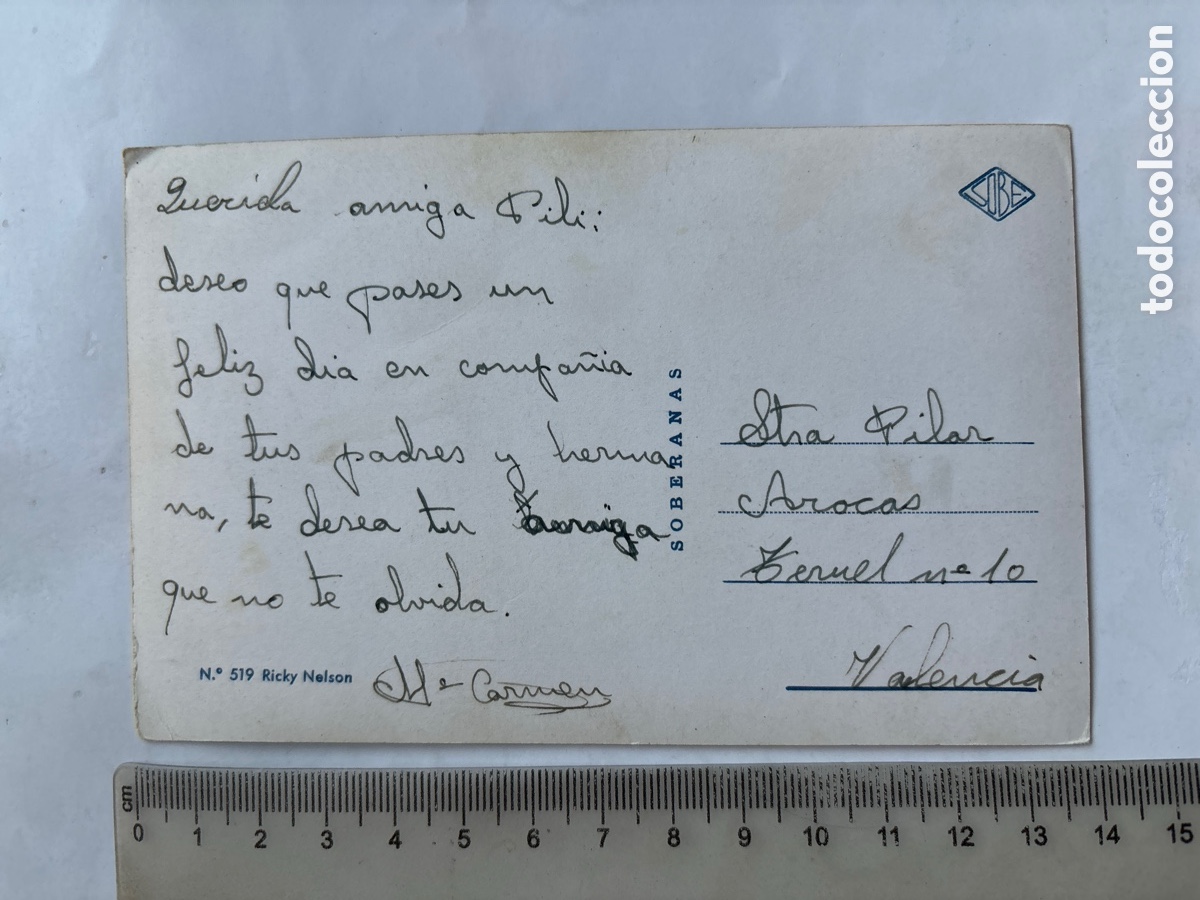 Querida amiga Pili:
deseo que pases un
feliz dia en compañia
de tus padres y herma
na, te desea tu amiga
que no te olvida.
Mª Carmen
N.º 519 Ricky Nelson
SOBERANAS
SOBE
Stra Pilar
Arocas
Teruel nº 10
Valencia
todocoleccion
cm
0 1 2 3 4 5 6 7 8 9 10 11 12 13 14 15